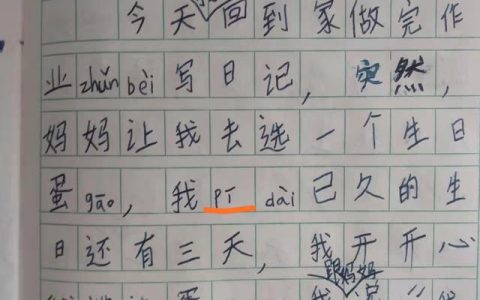 今天回到家做完作
业zhǔnbèi写日记，突然，
妈妈让我去选一个生日
蛋gāo，我pīdài已久的生
日还有三天，我开开心
跟妈妈